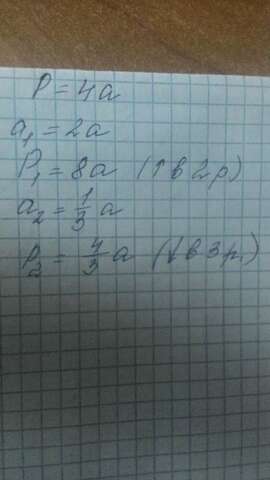 P = 4a
a₁ = 2a
P₁ = 8a (↑ в 2 р)
a₂ = 1/3 a
P₂ = 4/3 a (↓ в 3 р.)